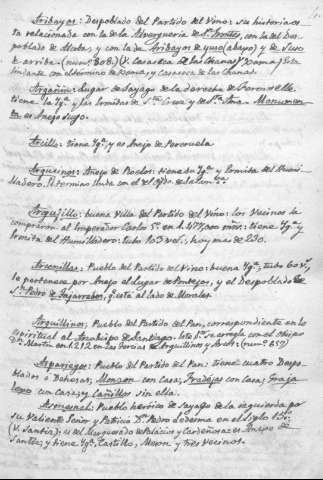 Aribayos: Despoblado del Partido del Vino: su historia es
ta relacionada con la de la Alberguería de
poblado de Mobas, y con la de Aribayos de yuso (abajo) y de Suso
ó arriba (num 808.) (V. Casaseca de las Chanas) y Xama) Esta
lindante con el término de Xema, y Casaseca de las Chanas.
Argañin: Lugar de Sayago de la derecha de Torrenelle.
tiene la Ygª. y las hermitas de Stª. Cruz y de Stª. Ana. Monumen
ta es Anejo suyo.
Arcillo: tiene Ygª. y es Anejo de Pereruela
Arquesinos: Anejo de Roelos: tiene ba Ygª. y hermita del Humi
lladero. El termino linda con el del
Argujillo: buena Villa del Partido del Vino: los Vecinos la
compraron al Emperador Carlos 5º. en : tiene Ygª. y
hermita del Humilladero: tubo 103 vsº. hoy mas de 230.
Arcenillas: Pueblo del Partido del Vino: buena Ygª. tubo 60 vsº.
le pertenece por Anejo el Lugar de Pontejos, y el Despoblado de
Sn. Pedro de qº. está al lado de Morales.
Arquillinos: Pueblo del Partido del Pan, correspondiente en lo
espiritual al Arzobispo de Santiago. este le arregla con el Obispo
Dn. Martin en 1.212 en las tercias de Arquillinos y (num 857)
Aspariegos: Pueblo del Partido del Pan: tiene cuatro Despo
blados o Dehesas, Monzon con casa; Pradejas con casa; Graja
con casa; y Cañillos sin ella.
Asmesnal: Pueblo heróico de Sayago de la izquierda por
su valiente Señor y Patricio Dn. Pedro Ledesma en el Siglo 15.
(V. Santiz); es del Marquesado de Palacios y Cardeñosa: es Anejo de
Santiz; y tiene Ygª. Castillo, Meson y tres Vecinos.